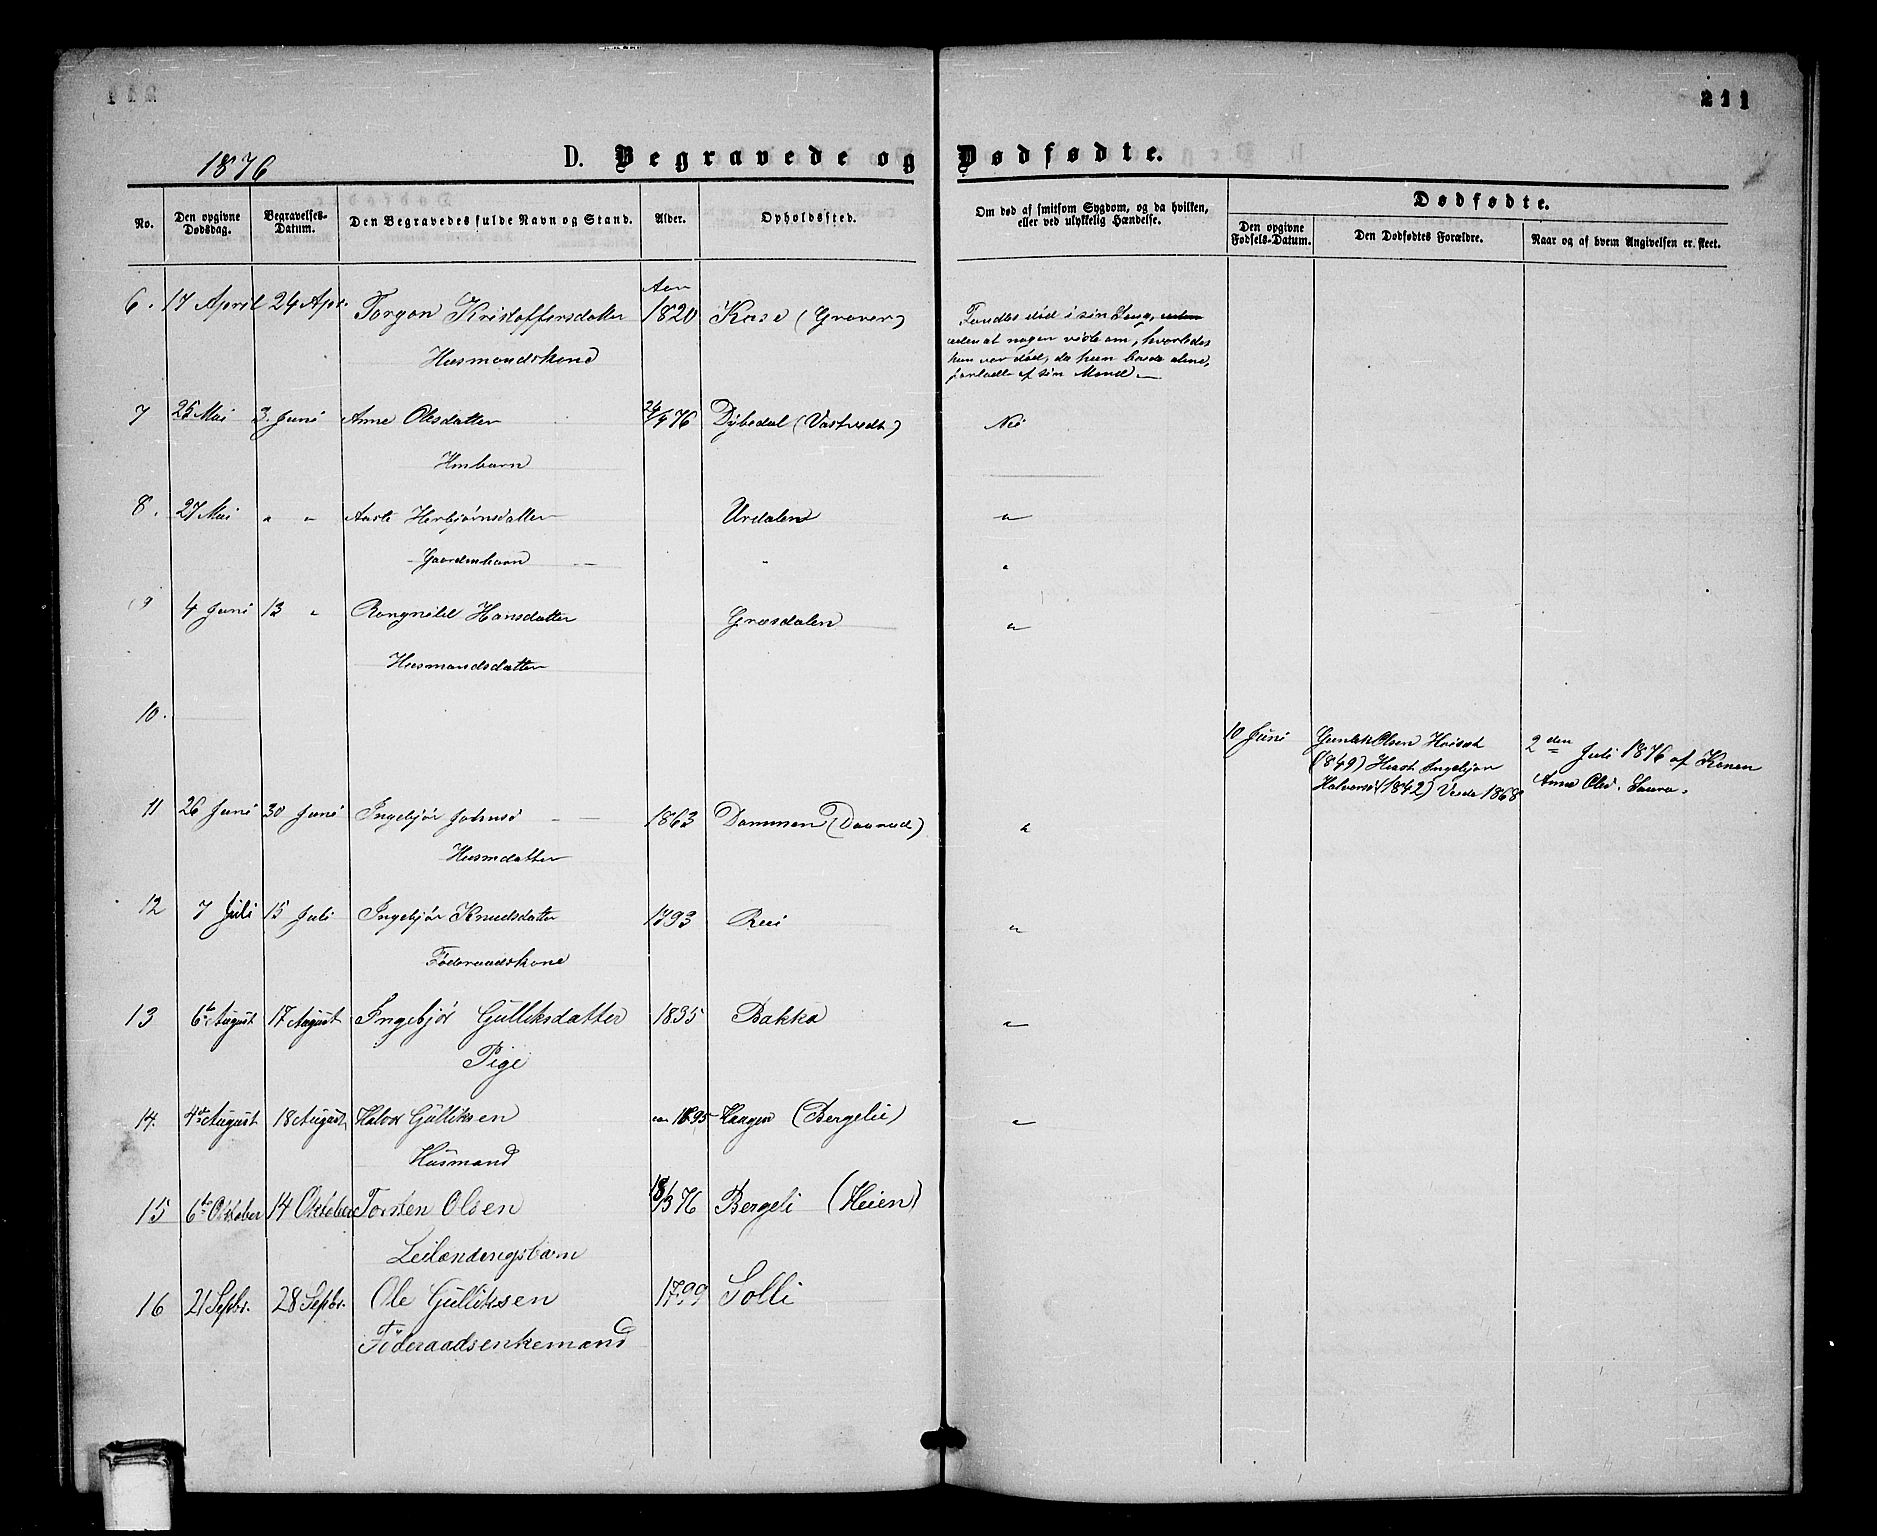 211
1876 D. Begravede og Dødfødte.
No. Den opgivne Dødsdag. Begravelses-Datum. Den Begravedes fulde Navn og Stand. Alder. Opholdssted. Om død af smitsom Sygdom, og da hvilken, eller ved ulykkelig Hændelse. Dødfødte.
Den opgivne Fødsels-Datum. Den Dødfødtes Forældre. Naar og af hvem Angivelsen er skeet.
6. 17 April 24 Apr. Torgon Kristoffersdatter 1820 Kase (Graver) Fandtes død i sin Seng, uden
Husmandskone uden at nogen vidste om, hvorledes
hun var død, da hun boede alene,
forladt af sin Mand.
7 25 Mai 3. Juni Anne Olesdatter 24/4 76 Dybedal (Vastvedt) Nei
Hmbarn
8. 27 Mai " " Aaste Herbjørnsdatter Urdalen "
Gaardmbarn "
9 4 Juni 13 " Rangnild Hansdatter Græsdalen "
Husmandsdatter
10. 10 Juni Gunlek Olsen Hvisat 2den Juli 1876 af Konen
(1849) Hust. Ingebjør Anne Olsd.
Halvorsd (1842) Viede 1868
11 26 Juni 30 Juni Ingebjør Johnsd 1863 Dammen (Daarud) "
Husmdatter
12 7 Juli 15 Juli Ingebjør Knudsdatter 1793 Rui "
Føderaadskone
13 6te August 17 August Ingebjør Gulliksdatter 1835 Bakka "
Pige
14. 4de August 18 August Halvor Gulliksen 1895 Haagen (Bergelie) "
Husmand
15 6te Oktober 14 Oktober Torsten Olsen 18/3 76 Bergeli (Heien)
Leilændingsbarn
16 21 Septbr. 28 Septbr. Ole Gulliksen 1799 Solli
Føderaadsenkemand